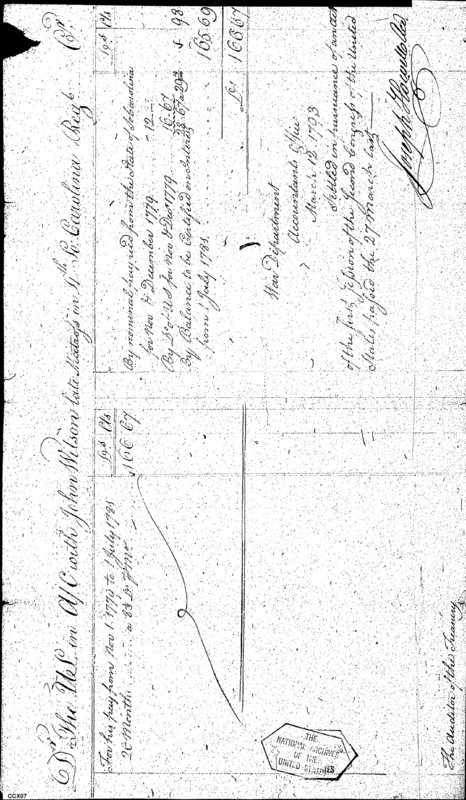 Dr. The U.S. in A/C with John Wilson late Matross in 4th So. Carolina Regt. Cr.
Drs Cts
For his pay from Nov 1. 1779 to 1 July 1781
20 Months a 8⅓ Dr. pr Mo
166 67
Drs Cts
By nominal pay recd from the State of So Carolina
for Nov & December 1779 12
By Do U.S. for Nov & Dec 1779 16.67
98
By Balance to be Certified on Interest
from 1 July 1781
165 69
Drs 166 67
War Department
Accountants Office
March 12 1793
Settled in pursuance of an act
of the first session of the Second Congress of the United
States passed the 27 March last
Joseph Howell
The Auditor of the Treasury
THE
NATIONAL ARCHIVES
OF THE
UNITED STATES
CCX07